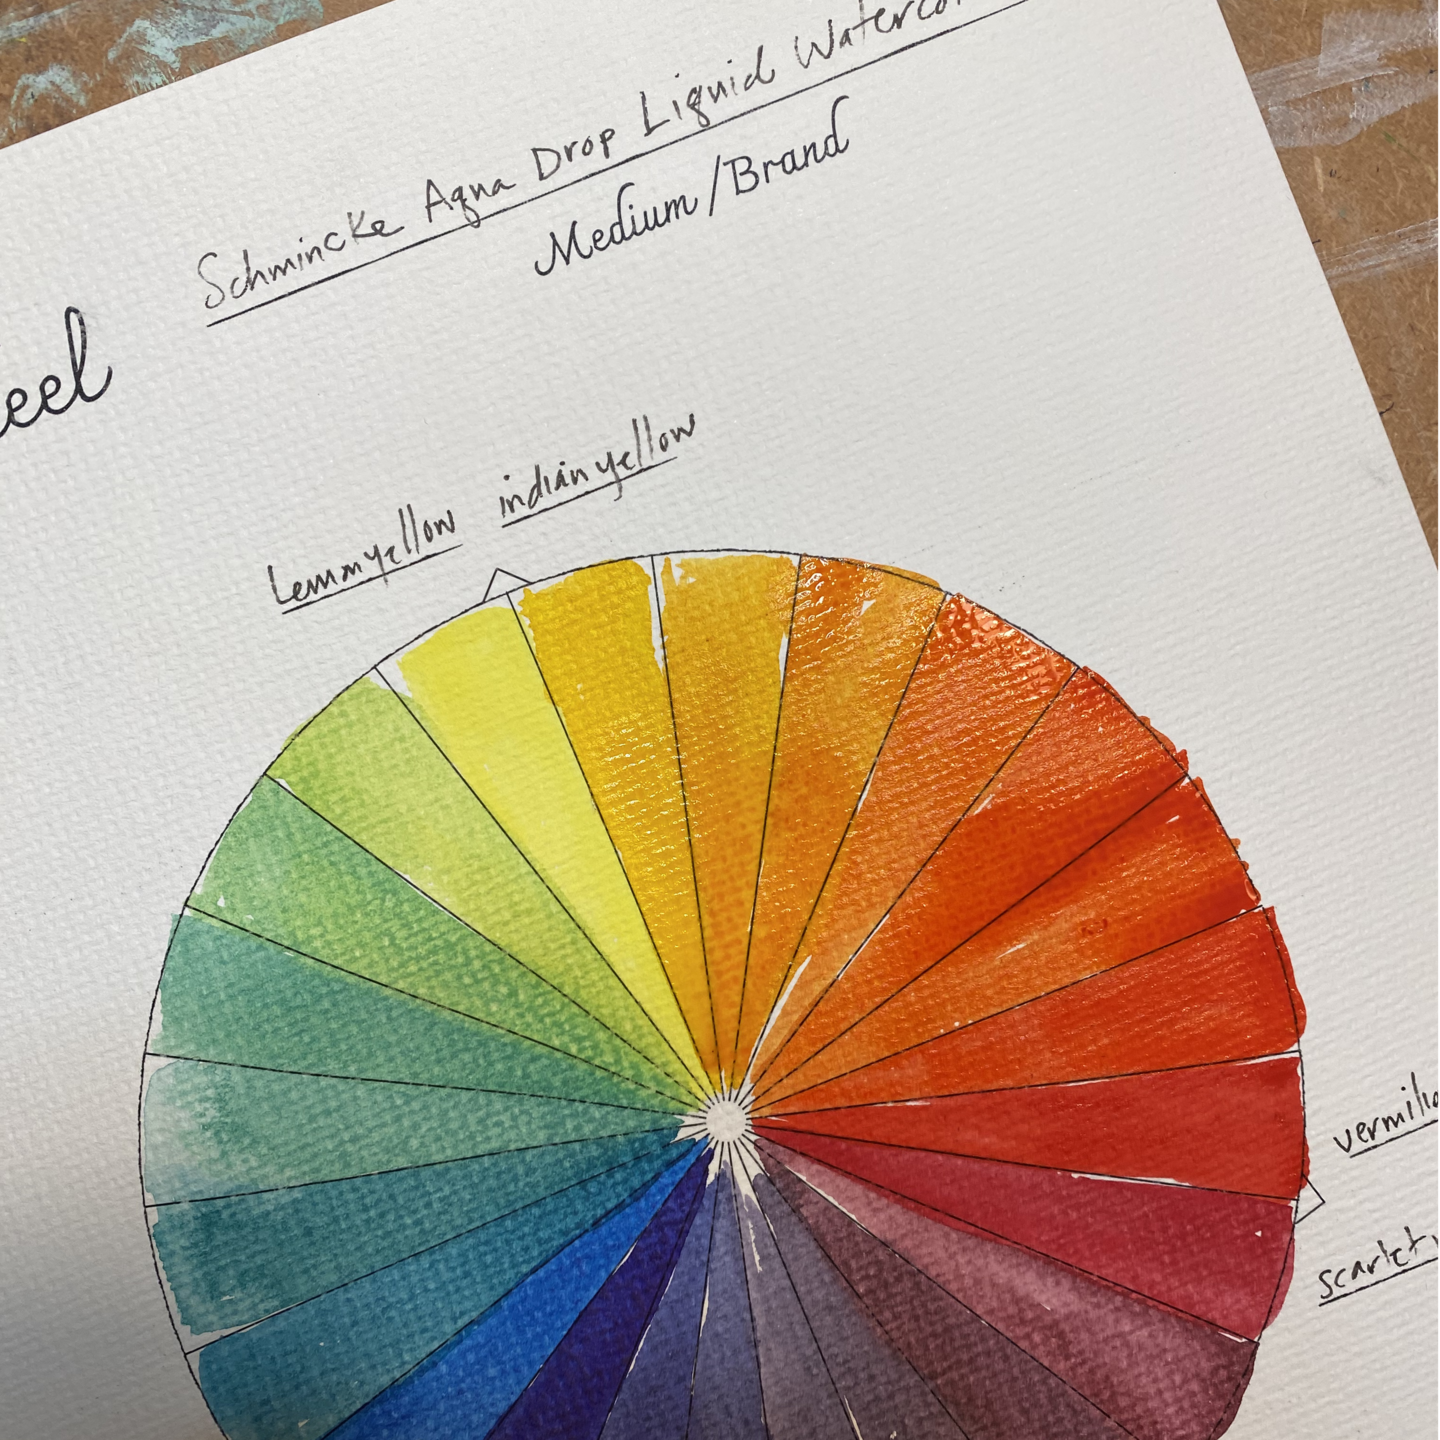 Schmincke Aqua Drop Liquid Waterco
Medium/Brand
eel
Lemonyellow indian yellow
vermilio
scarlet